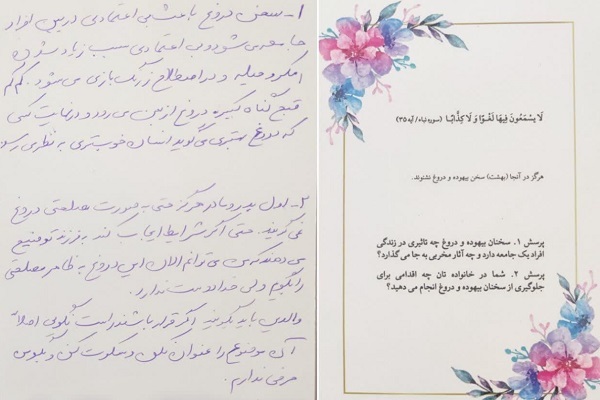 ۱- سخن دروغ باعث بی اعتمادی در بین افراد
جامعه می شود و بی اعتمادی سبب زیاد شدن
مکر و حیله و در اصطلاح زرنگ بازی می شود. کم کم
قبح گناه کبیره دروغ از بین می رود و در نهایت کسی
که دروغ بیشتری می گوید انسان خوبتری به نظر می رسد
۲- اول پدر و مادر هرگز حتی به صورت مصلحتی دروغ
نمی گویند. حتی اگر شرایط ایجاب کند به فرزند توضیح
می دهند که من می توانم الان این دروغ به ظاهر مصلحتی
را بگویم ولی خدا دوست ندارد.
والدین باید بگویند اگر قرار باشد راست نگویی اصلاً
آن موضوع را عنوان نکن و سکوت کن و بگو من
حرفی ندارم.
لَا يَسْمَعُونَ فِيهَا لَغْوًا وَلَا كِذَّابًا (سوره نباء/ آیه ۳۵)
هرگز در آنجا (بهشت) سخن بیهوده و دروغ نشنوند.
پرسش ۱. سخنان بیهوده و دروغ چه تاثیری در زندگی
افراد یک جامعه دارد و چه آثار مخربی به جا می گذارد؟
پرسش ۲. شما در خانواده تان چه اقدامی برای
جلوگیری از سخنان بیهوده و دروغ انجام می دهید؟